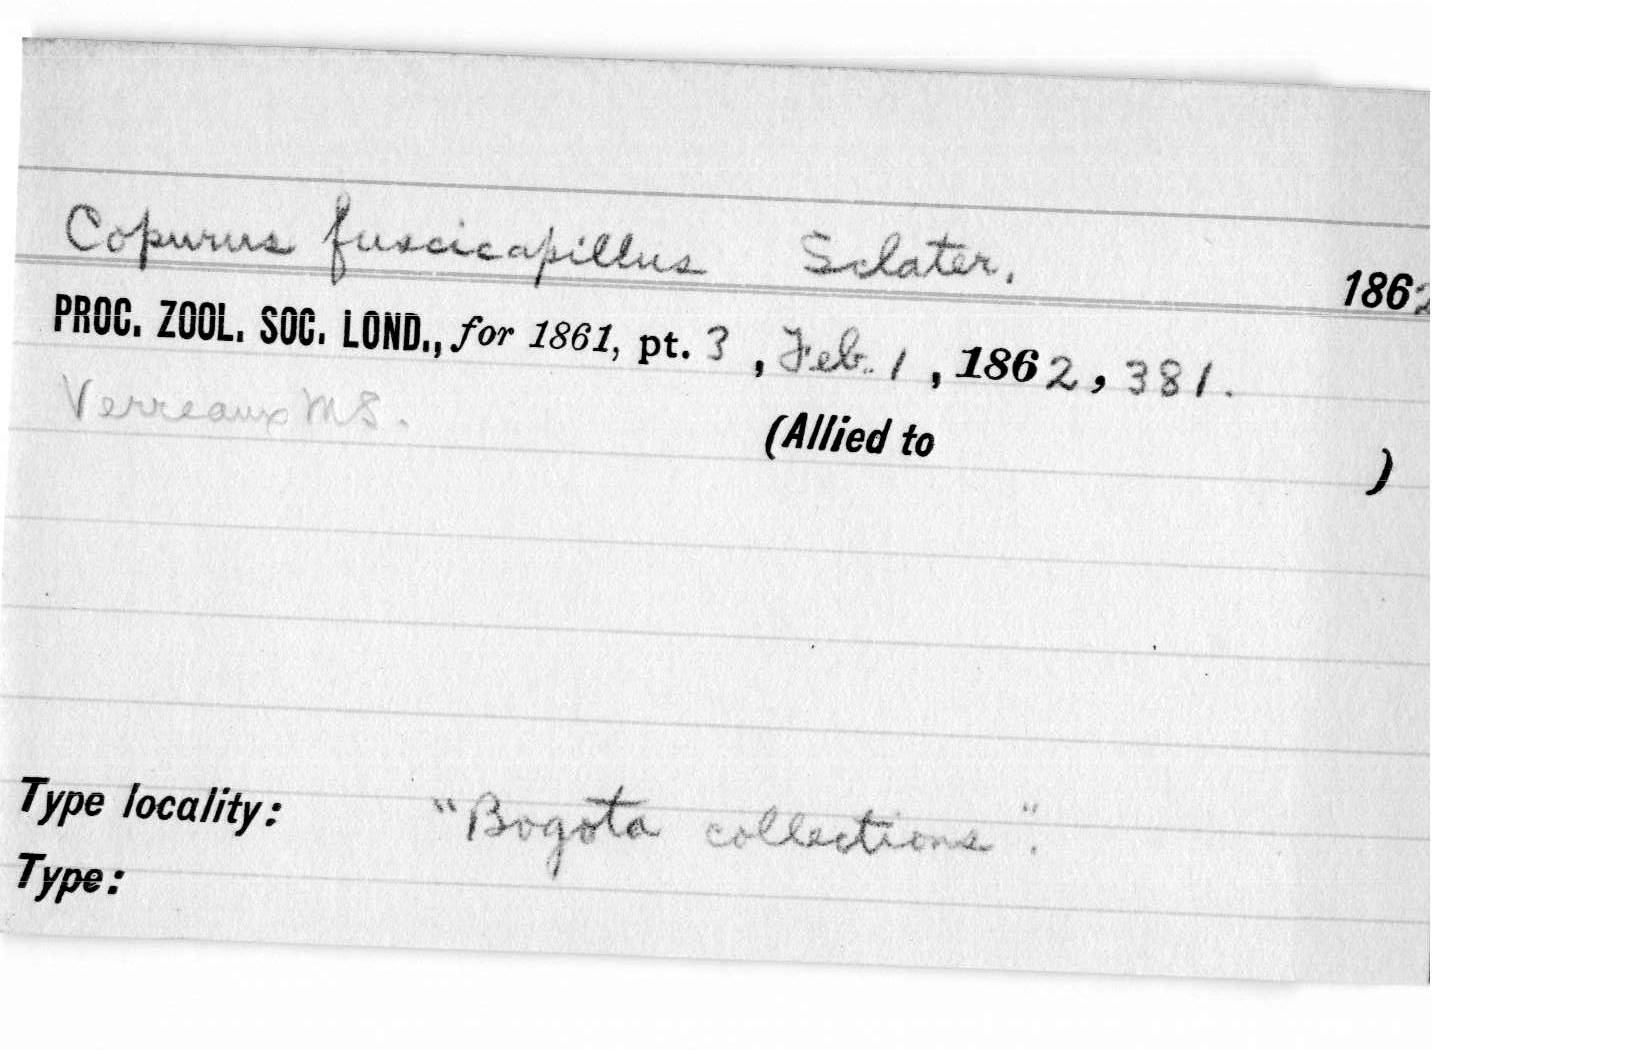 Copurus fuscicapillus Sclater. 1862
PROC. ZOOL. SOC. LOND., for 1861, pt. 3, Feb. 1, 1862, 381.
Verreaux MS.
(Allied to )
Type locality: "Bogota collections".
Type: